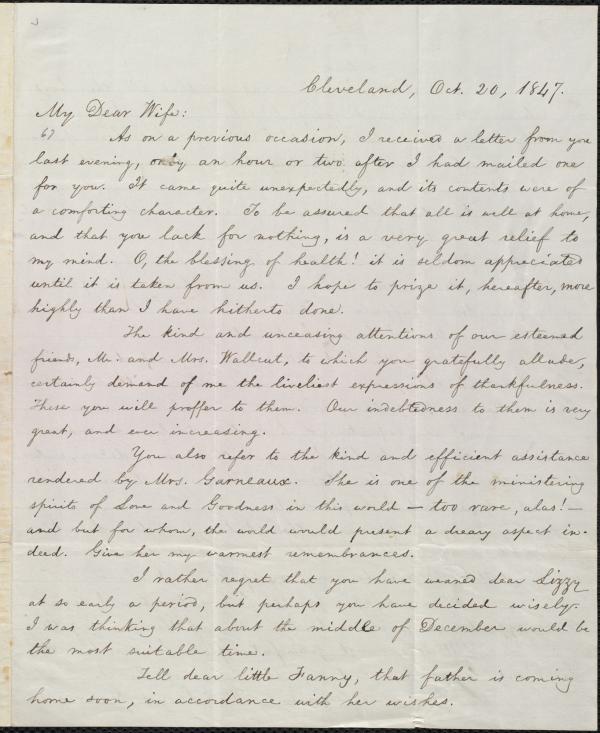 Cleveland, Oct. 20, 1847.
My Dear Wife:
As on a previous occasion, I received a letter from you
last evening, only an hour or two after I had mailed one
for you. It came quite unexpectedly, and its contents were of
a comforting character. To be assured that all is well at home,
and that you lack for nothing, is a very great relief to
my mind. O, the blessing of health! it is seldom appreciated
until it is taken from us. I hope to prize it, hereafter, more
highly than I have hitherto done.
The kind and unceasing attentions of our esteemed
friends, Mr. and Mrs. Wallcut, to which you gratefully allude,
certainly demand of me the liveliest expressions of thankfulness.
These you will proffer to them. Our indebtedness to them is very
great, and ever increasing.
You also refer to the kind and efficient assistance
rendered by Mrs. Garneaux. She is one of the ministering
spirits of Love and Goodness in this world — too rare, alas! —
and but for whom, the world would present a dreary aspect in-
deed. Give her my warmest remembrances.
I rather regret that you have weaned dear Lizzy
at so early a period, but perhaps you have decided wisely.
I was thinking that about the middle of December would be
the most suitable time.
Tell dear little Fanny, that father is coming
home soon, in accordance with her wishes.